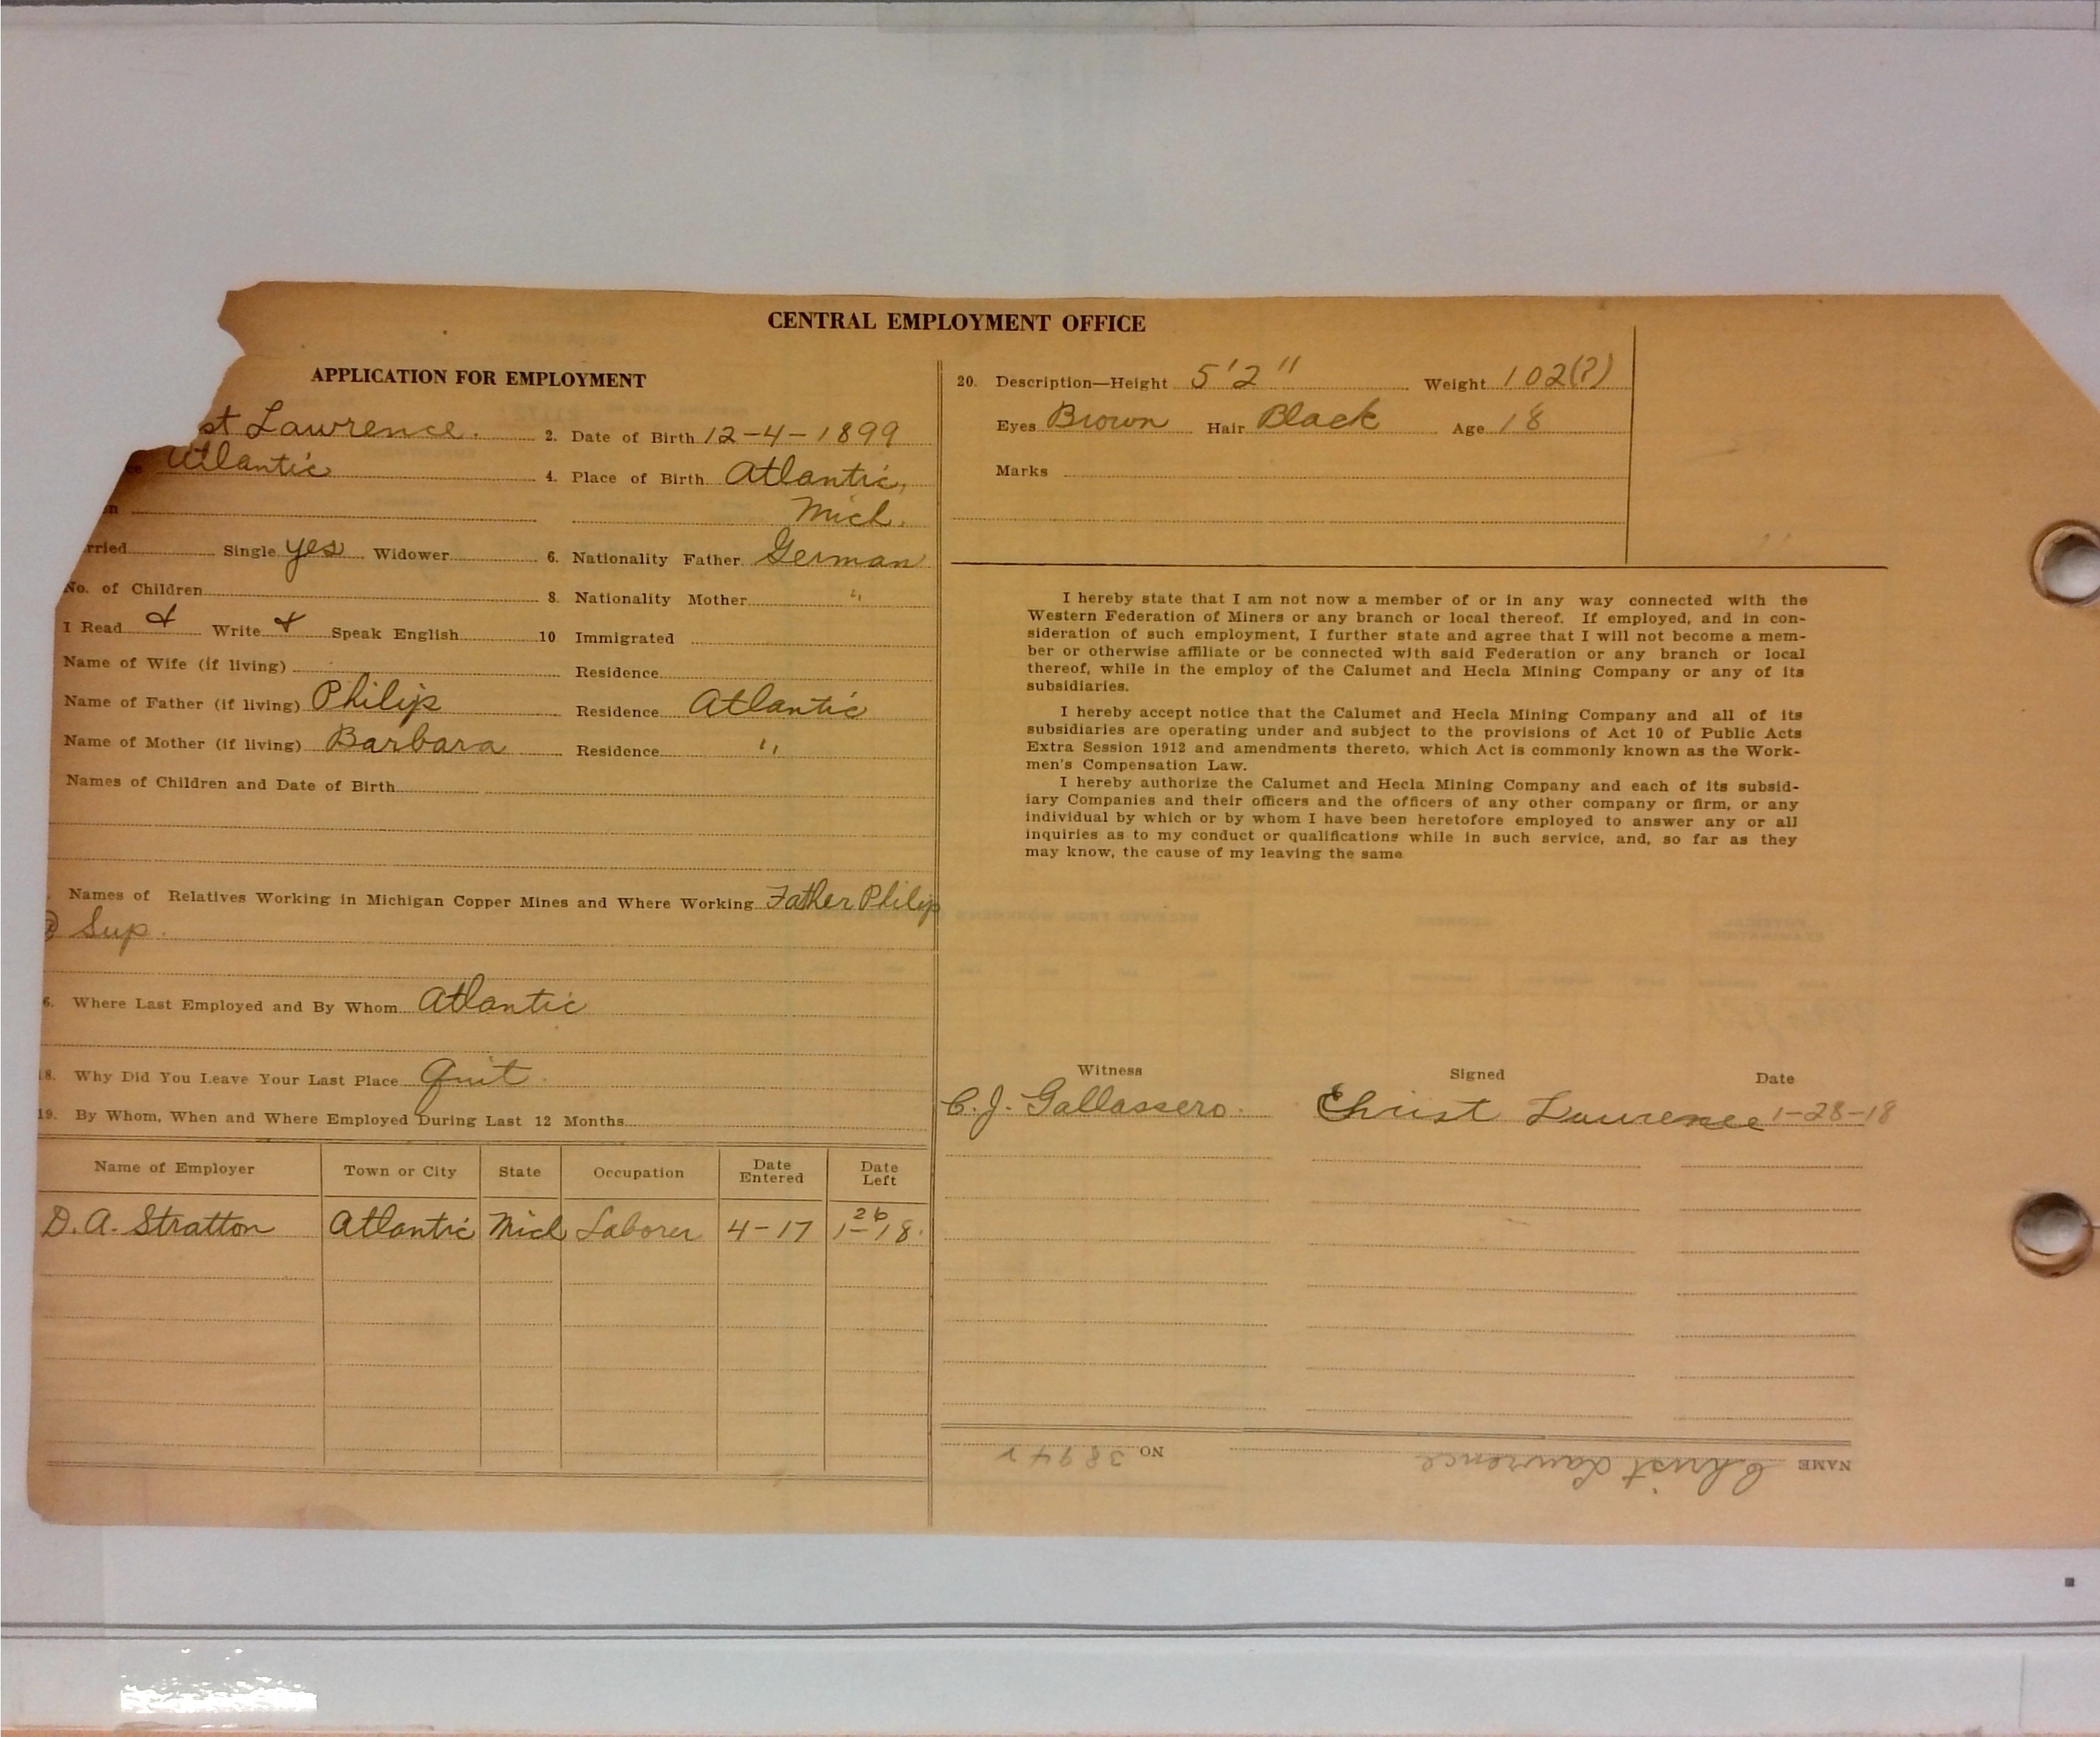 CENTRAL EMPLOYMENT OFFICE
APPLICATION FOR EMPLOYMENT
st Lawrence. 2. Date of Birth 12-4-1899
Atlantic 4. Place of Birth Atlantic,
Mich.
rried Single yes Widower 6. Nationality Father German
No. of Children 8. Nationality Mother "
I Read Write Speak English 10 Immigrated
Name of Wife (if living) Residence
Name of Father (if living) Philip Residence Atlantic
Name of Mother (if living) Barbara Residence "
Names of Children and Date of Birth
Names of Relatives Working in Michigan Copper Mines and Where Working Father Philip
@ Sup.
6. Where Last Employed and By Whom Atlantic
18. Why Did You Leave Your Last Place Quit.
19. By Whom, When and Where Employed During Last 12 Months
Name of Employer Town or City State Occupation Date Entered Date Left
D. A. Stratton Atlantic Mich Laborer 4-17 1-26-18.
20. Description—Height 5'2" Weight 102(?)
Eyes Brown Hair Black Age 18
Marks
I hereby state that I am not now a member of or in any way connected with the
Western Federation of Miners or any branch or local thereof. If employed, and in con-
sideration of such employment, I further state and agree that I will not become a mem-
ber or otherwise affiliate or be connected with said Federation or any branch or local
thereof, while in the employ of the Calumet and Hecla Mining Company or any of its
subsidiaries.
I hereby accept notice that the Calumet and Hecla Mining Company and all of its
subsidiaries are operating under and subject to the provisions of Act 10 of Public Acts
Extra Session 1912 and amendments thereto, which Act is commonly known as the Work-
men's Compensation Law.
I hereby authorize the Calumet and Hecla Mining Company and each of its subsid-
iary Companies and their officers and the officers of any other company or firm, or any
individual by which or by whom I have been heretofore employed to answer any or all
inquiries as to my conduct or qualifications while in such service, and, so far as they
may know, the cause of my leaving the same
Witness Signed Date
C. J. Gallassero. Christ Lawrence 1-28-18
NAME Christ Lawrence NO